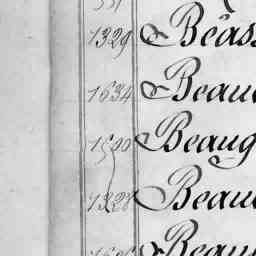 551
1329 Bêass
1634 Beau
1500 Beaug
1328 Beau
Beau